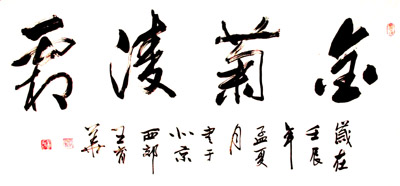 金菊凌霜
歲在
壬辰
年
孟夏
月
书于
北京
西部
王
華